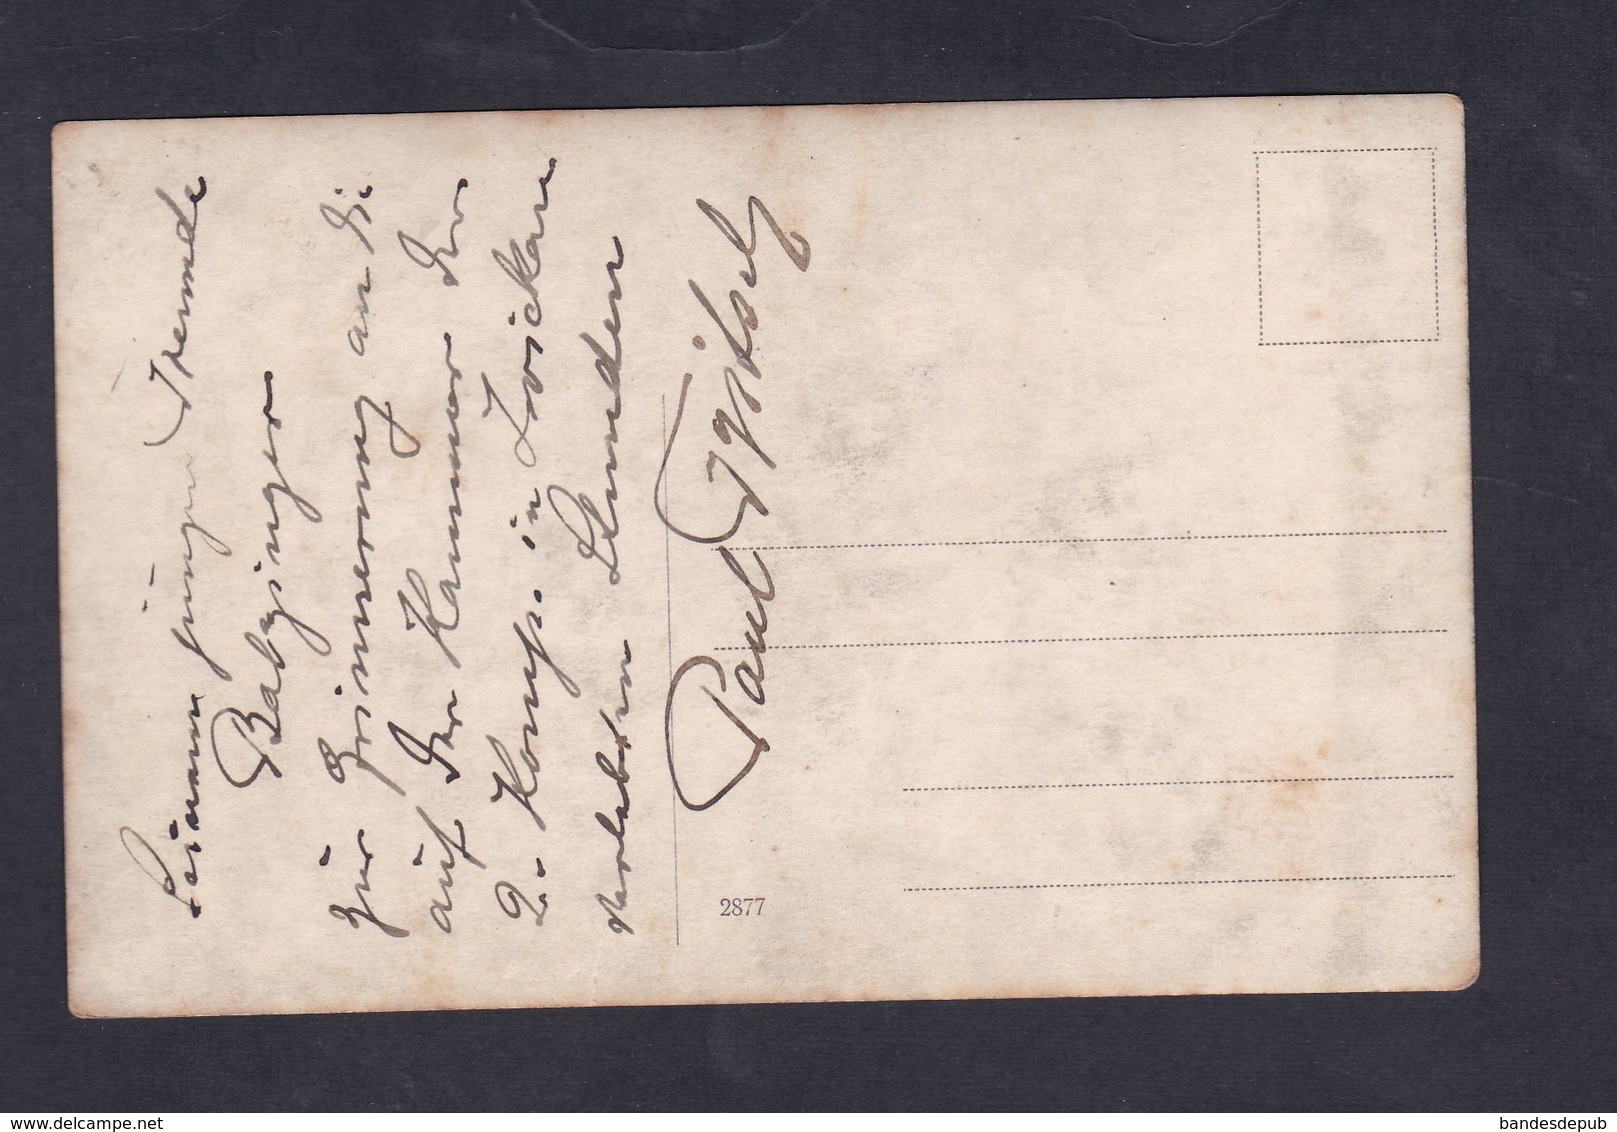 Seinem jungen Freunde
Babginger
zur Erinnerung an die
auf der Kammer der
2. Komp. in Zwickau
verlebten Stunden
Paul
2877
www.delcampe.net
bandesdepub